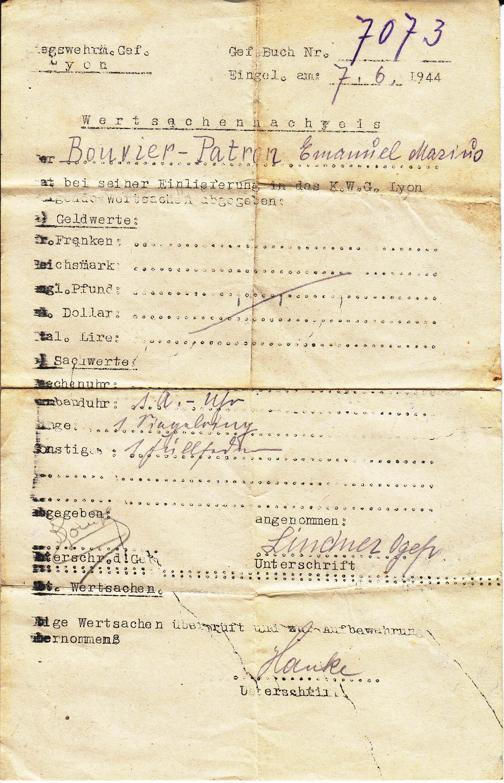 egswehrm.Gef. Gef.Buch Nr. 7073
Lyon Eingel. am: 7.6. 1944
Wertsachennachweis
er Bouvier-Patron Emanuel Marius
at bei seiner Einlieferung in das K.W.G. Lyon
lgende Wertsachen abgegeben:
Geldwerte:
r.Franken:
eichsmark:
ngl.Pfund:
. Dollar:
tal. Lire:
Sachwerte:
schenuhr:
mbanduhr: 1 A.- Uhr
inge: 1 Siegelring
onstig. 1 Füllfeder
bgegeben: angenommen:
Lindner Ogefr.
nterschr.d.Gef. Unterschrift
t. Wertsachen.
ige Wertsachen überprüft und zur Aufbewahrung
bernommen:
Hanke
Unterschrift